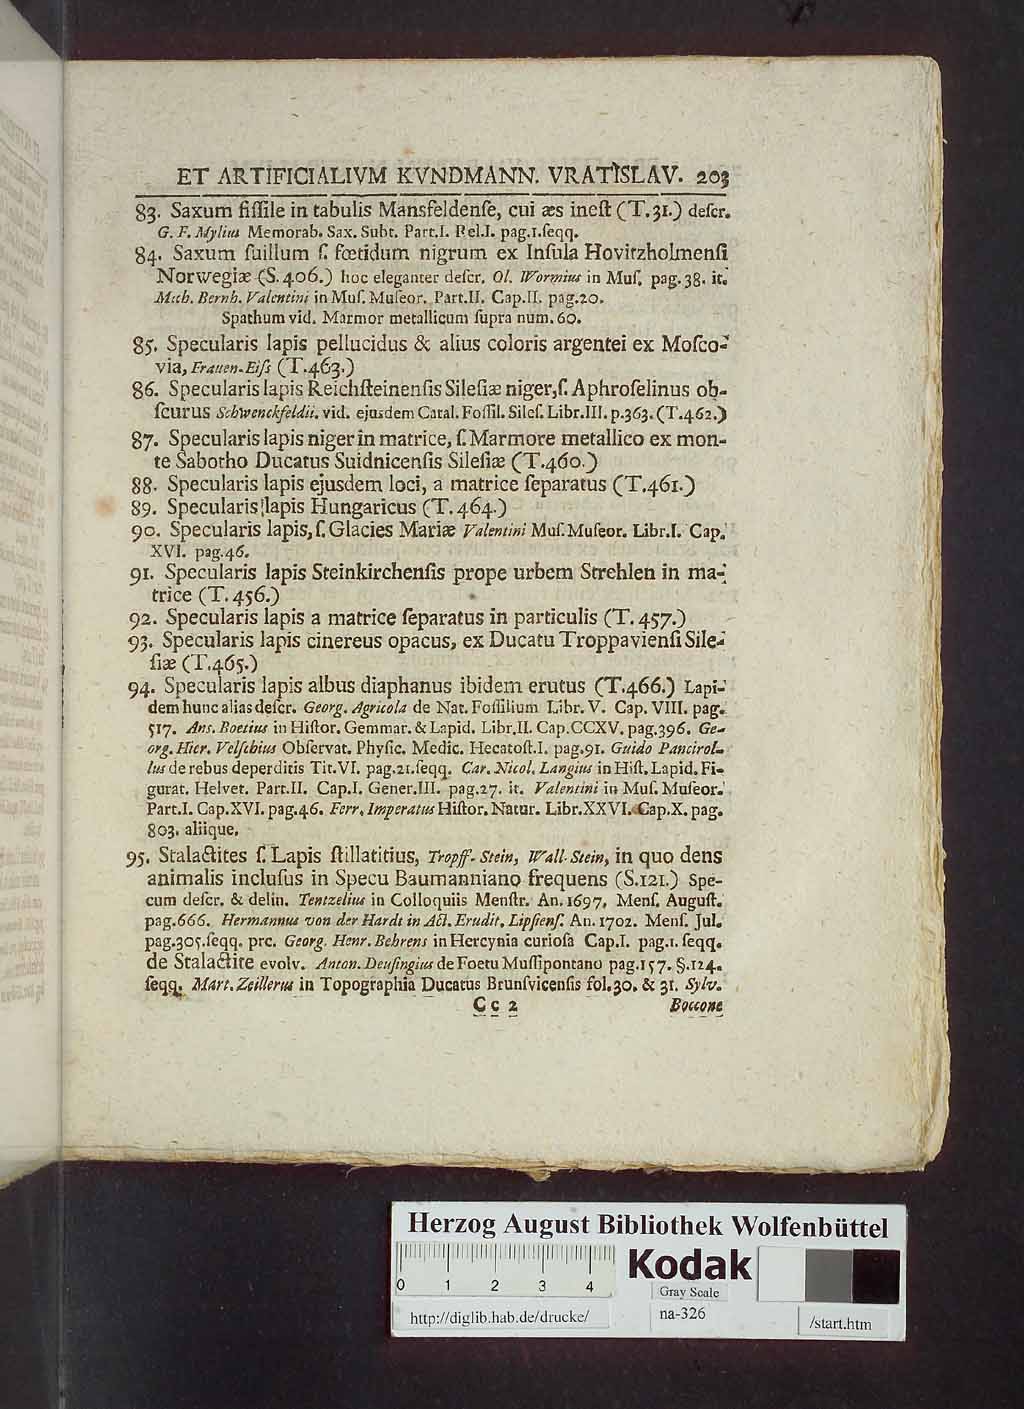 ET ARTIFICIALIVM KVNDMANN. VRATISLAV. 203
83. Saxum fiſſile in tabulis Mansfeldenſe, cui æs ineſt (T.31.) deſcr.
G. F. Mylius Memorab. Sax. Subt. Part.I. Rel.I. pag.1.ſeqq.
84. Saxum ſuillum ſ. fœtidum nigrum ex Inſula Hovitzholmenſi
Norwegiæ (S.406.) hoc eleganter deſcr. Ol. Wormius in Muſ. pag.38. it.
Mich. Bernh. Valentini in Muſ. Muſeor. Part.II. Cap.II. pag.20.
Spathum vid. Marmor metallicum ſupra num.60.
85. Specularis lapis pellucidus & alius coloris argentei ex Moſco-
via, Frauen-Eiſs (T.463.)
86. Specularis lapis Reichſteinenſis Sileſiæ niger,ſ. Aphroſelinus ob-
ſcurus Schwenckfeldii. vid. ejusdem Catal. Foſſil. Sileſ. Libr.III. p.363. (T.462.)
87. Specularis lapis niger in matrice, ſ. Marmore metallico ex mon-
te Sabotho Ducatus Suidnicenſis Sileſiæ (T.460.)
88. Specularis lapis ejusdem loci, a matrice ſeparatus (T.461.)
89. Specularis lapis Hungaricus (T.464.)
90. Specularis lapis, ſ. Glacies Mariæ Valentini Muſ. Muſeor. Libr.I. Cap.
XVI. pag.46.
91. Specularis lapis Steinkirchenſis prope urbem Strehlen in ma-
trice (T.456.)
92. Specularis lapis a matrice ſeparatus in particulis (T.457.)
93. Specularis lapis cinereus opacus, ex Ducatu Troppavienſi Sile-
ſiæ (T.465.)
94. Specularis lapis albus diaphanus ibidem erutus (T.466.) Lapi-
dem hunc alias deſcr. Georg. Agricola de Nat. Foſſilium Libr. V. Cap. VIII. pag.
517. Ans. Boetius in Hiſtor. Gemmar. & Lapid. Libr.II. Cap.CCXV. pag.396. Ge-
org. Hier. Velſchius Obſervat. Phyſic. Medic. Hecatoſt.I. pag.91. Guido Pancirol-
lus de rebus deperditis Tit.VI. pag.21.ſeqq. Car. Nicol. Langius in Hiſt. Lapid. Fi-
gurat. Helvet. Part.II. Cap.I. Gener.III. pag.27. it. Valentini in Muſ. Muſeor.
Part.I. Cap.XVI. pag.46. Ferr. Imperatus Hiſtor. Natur. Libr.XXVI. Cap.X. pag.
803. aliique.
95. Stalactites ſ. Lapis ſtillatitius, Tropff-Stein, Wall-Stein, in quo dens
animalis incluſus in Specu Baumanniano frequens (S.121.) Spe-
cum deſcr. & delin. Tentzelius in Colloquiis Menſtr. An.1697. Menſ. Auguſt.
pag.666. Hermannus von der Hardt in Act. Erudit. Lipſienſ. An. 1702. Menſ. Jul.
pag.305.ſeqq. prc. Georg. Henr. Behrens in Hercynia curioſa Cap.I. pag.1. ſeqq.
de Stalactite evolv. Anton. Deuſingius de Foetu Muſſipontano pag.157. §.124.
ſeqq. Mart. Zeillerus in Topographia Ducatus Brunſvicenſis fol.30. & 31. Sylv.
Cc 2 Boccone
Herzog August Bibliothek Wolfenbüttel
0 1 2 3 4
Kodak
Gray Scale
http://diglib.hab.de/drucke/
na-326
/start.htm